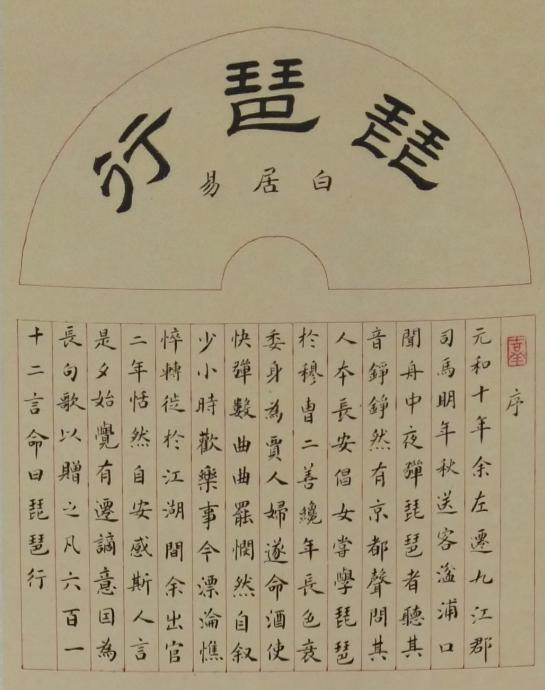 琵琶行
白居易
序
元和十年余左遷九江郡
司馬明年秋送客湓浦口
聞舟中夜彈琵琶者聽其
音錚錚然有京都聲問其
人本長安倡女嘗學琵琶
於穆曹二善纔年長色衰
委身為賈人婦遂命酒使
快彈數曲曲罷憫然自叙
少小時歡樂事今漂淪憔
悴轉徙於江湖間余出官
二年恬然自安感斯人言
是夕始覺有遷謫意因為
長句歌以贈之凡六百一
十二言命曰琵琶行